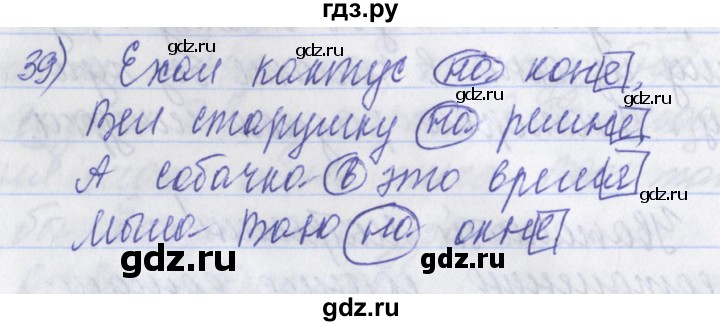 гдз.ру
39) Ехал кактус на коне,
gdz.ru
gdz.ru
Вел старушку на ремне,
gdz.ru
gdz.ru
А собачка в это время
gdz.ru
gdz.ru
Мыла Ваню на окне
gdz.ru
gdz.ru
gdz.ru